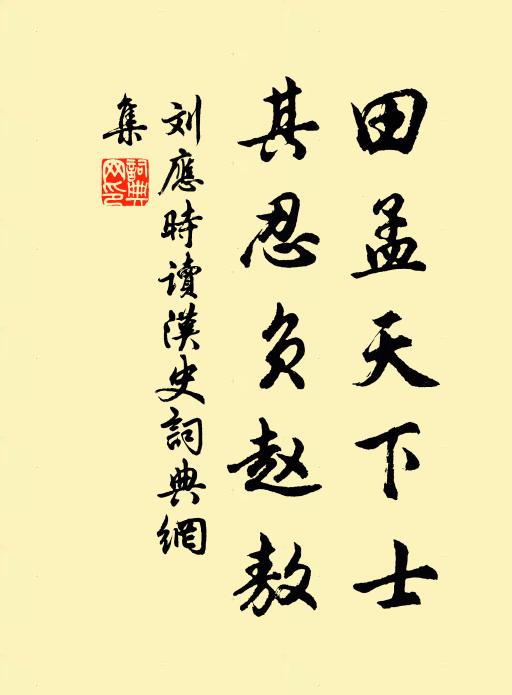 田孟天下士
其忍负赵敖
刘應時读漢史詞典網
集
詞典
网印